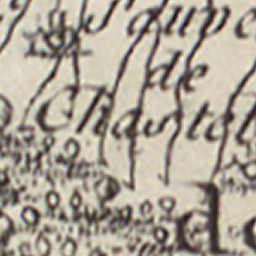 Sauve
de
Chastel
d